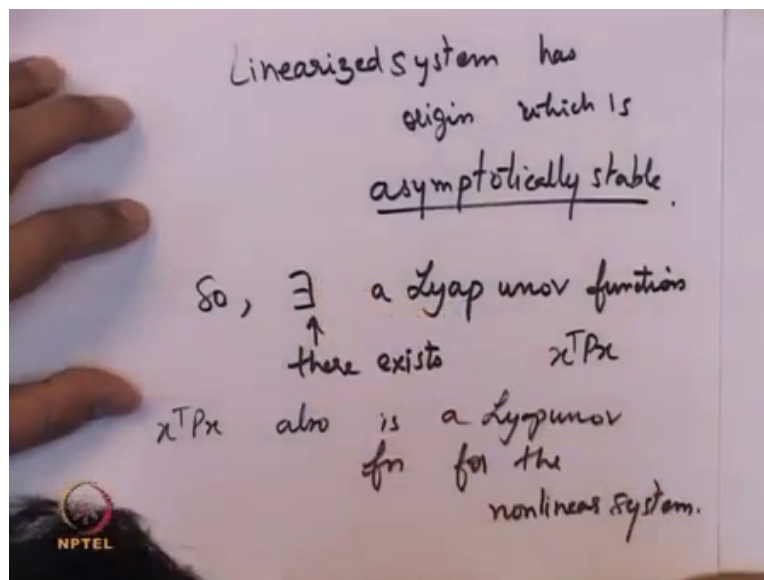 Linearized system has
origin which is
asymptotically stable.
So, ∃ a Lyapunov function
↑
there exists xᵀPx
xᵀPx also is a Lyapunov
fn for the
nonlinear system.
NPTEL